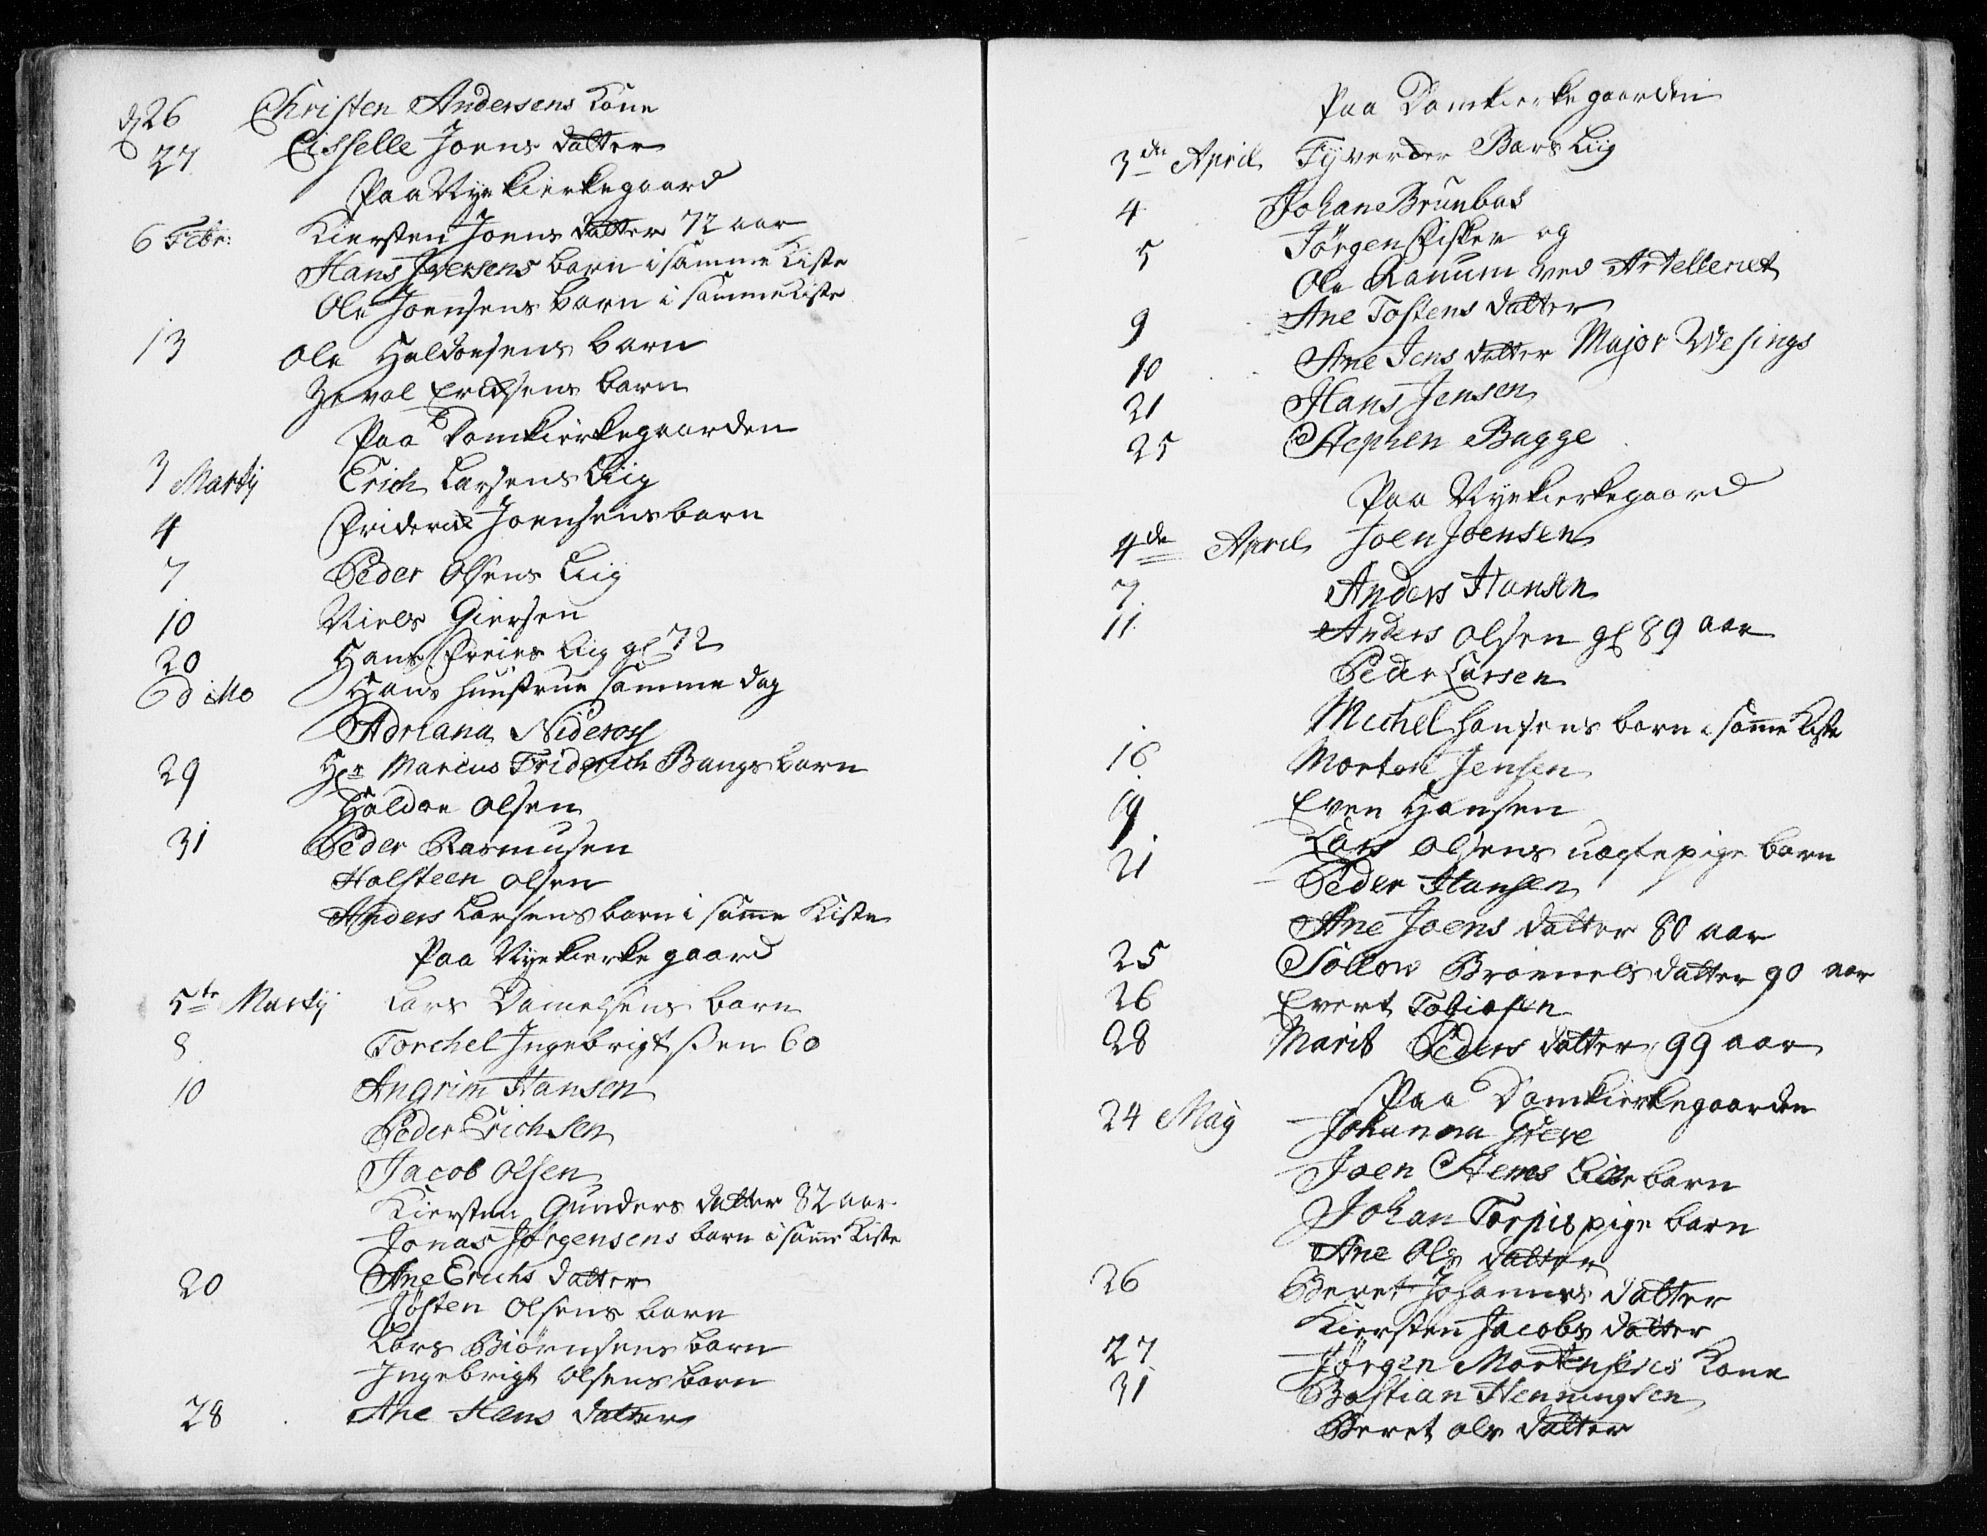 d 26 Christen Andersens Kone
27 Cisselle Joens datter
Paa Nye Kierkegaard
6 Febr: Kiersten Joens datter 72 aar
Hans Iversens barn i samme Kiste
Ole Joensens barn i samme Kiste
13 Ole Haldorsens barn
Erichsens barn
Paa Domkierkegaarden
3 Martij Erich Larsens Liig
4 Friderich Joensens barn
7 Peder Olsens Liig
10 Niels Giersen
20 Hans Freies Liig gl 72
dito Hans huustrue samme dag
Adriana Nideros
29 Hr Marcus Friderich Bangs barn
Haldor Olsen
31 Peder Rasmusen
Holsteen Olsen
Anders Larsens barn i samme Kiste
Paa Nyekierke gaard
5te Martij Lars Danielsens barn
8 Torchel Ingebrigtssen 60
10 Angrim Hansen
Peder Erichsen
Jacob Olsen
Kiersten Gunders datter 82 aar
Jonas Jørgensens barn i samme Kiste
20 Ane Erichs datter
Jøsten Olsens barn
Lars Biørnsens barn
Ingebrigt Olsens barn
28 Ane Hans datter
Paa Domkierke gaarden
3de April Fyrverker Bars Liig
4 Johan Brunbas
5 Jørgen Fisker og
Ole Ranum ved Artelleriet
9 Ane Tostens datter
10 Ane Jens datter Major Wesings
21 Hans Jensen
25 Stephen Bugge
Paa Nyekierkegaard
4de April Joen Joensen
7 Anders Hansen
11 Anders Olsen gl 89 aar
Peder Larsen
Michel Hansens barn i samme Kiste
16 Morten Jensen
19 Even Hansen
Lars Olsens uægte pige barn
21 Peder Hansen
Ane Joens datter 80 aar
25 Brønnels datter 90 aar
26 Evert Tobiasen
28 Marit Peders datter 99 aar
Paa Domkierkegaarden
24 Maij Johanna Greve
Joen Stenes Lille barn
Johan Torpis pige barn
Ane Ols datter
26 Beret Johannes datter
Kiersten Jacobs datter
27 Jørgen Mortensens Kone
31 Bastian Henningsen
Beret Ols datter